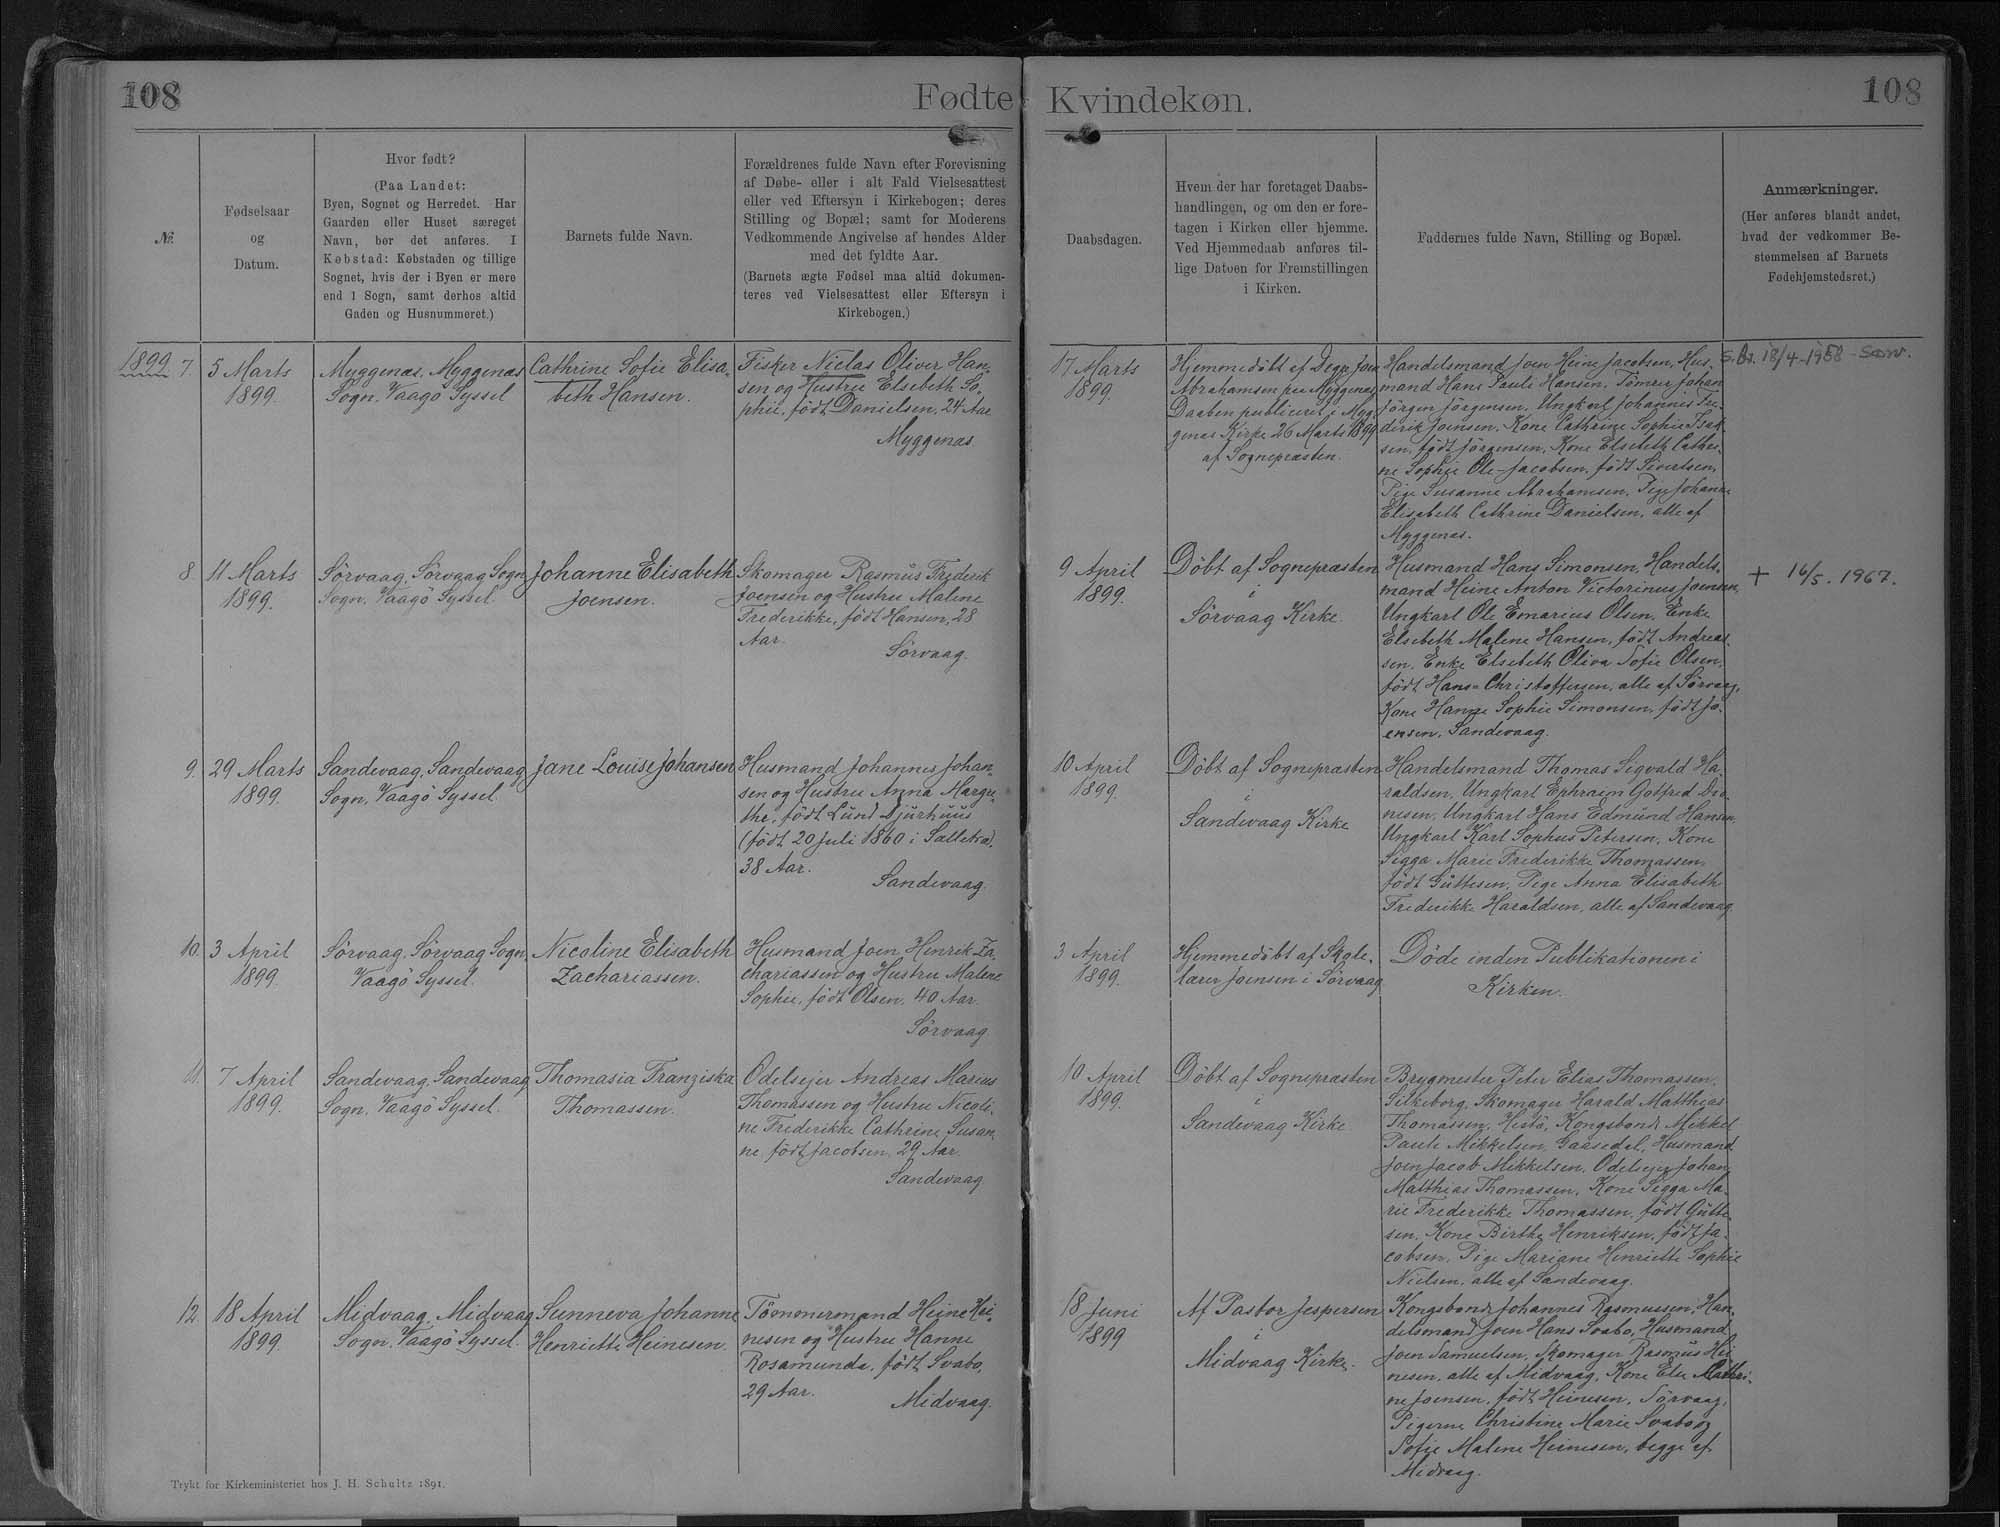 108
Fødte
Kvindekøn.
108
№
Fødselsaar
og
Datum.
Hvor født?
(Paa Landet:
Byen, Sognet og Herredet. Har
Gaarden eller Huset særeget
Navn, bør det anføres. I
Købstad: Købstaden og tillige
Sognet, hvis der i Byen er mere
end 1 Sogn, samt derhos altid
Gaden og Husnummeret.)
Barnets fulde Navn.
Forældrenes fulde Navn efter Forevisning
af Døbe- eller i alt Fald Vielsesattest
eller ved Eftersyn i Kirkebogen; deres
Stilling og Bopæl; samt for Moderens
Vedkommende Angivelse af hendes Alder
med det fyldte Aar.
(Barnets ægte Fødsel maa altid dokumen-
teres ved Vielsesattest eller Eftersyn i
Kirkebogen.)
Daabsdagen.
Hvem der har foretaget Daabs-
handlingen, og om den er fore-
tagen i Kirken eller hjemme.
Ved Hjemmedaab anføres til-
lige Datoen for Fremstillingen
i Kirken.
Faddernes fulde Navn, Stilling og Bopæl.
Anmærkninger.
(Her anføres blandt andet,
hvad der vedkommer Be-
stemmelsen af Barnets
Fødehjemstedsret.)
1899 7.
5 Marts
1899.
Myggenæs, Myggenæs
Sogn, Vaagö Syssel
Cathrine Sofie Elisa-
beth Hansen.
Fisker Niclas Oliver Han-
sen og Hustru Elsebeth So-
phie, født Danielsen, 24 Aar
Myggenæs.
17 Marts
1899.
Hjemmedöbt af Degn Joen
Abrahamsen paa Myggenæs
Daaben publiceret i Myg-
genæs Kirke 26 Marts 1899
af Sognepræsten.
Handelsmand Joen Heine Jacobsen, Hus-
mand Hans Pauli Hansen, Tömrer Johan
Jörgen Jörgensen, Ungkarl Johannes Fre-
derik Joensen, Kone Cathrine Sophie Isak-
sen, født Jörgensen, Kone Elsebeth Cathri-
ne Sophie Ole-Jacobsen, født Sivertsen,
Pige Susanne Abrahamsen, Pige Johanne
Elisabeth Cathrine Danielsen, alle af
Myggenæs.
18/4-1958
8.
11 Marts
1899.
Sörvaag, Sörvaag Sogn
Sogn, Vaagö Syssel.
Johanne Elisabeth
Joensen.
Skomager Rasmus Frederik
Joensen og Hustru Malene
Frederikke, født Hansen, 28
Aar.
Sörvaag.
9 April
1899.
Döbt af Sognepræsten
i
Sörvaag Kirke.
Husmand Hans Simonsen, Handels-
mand Heine Anton Victorinus Joensen,
Ungkarl Ole Emarius Olsen, Enke
Elsebeth Malene Hansen, født Andreas-
sen, Enke Elsebeth Oliva Sofie Olsen,
født Hans-Christoffersen, alle af Sörvaag,
Kone Hanne Sophie Simonsen, født Jo-
ensen, Sandevaag.
+ 16/5. 1967.
9.
29 Marts
1899.
Sandevaag, Sandevaag
Sogn, Vaagö Syssel.
Jane Louise Johansen
Husmand Johannes Johan-
sen og Hustru Anna Margre-
the, født Lund Djurhuus
(født 20 Juli 1860 i Salletræ),
38 Aar.
Sandevaag.
10 April
1899.
Döbt af Sognepræsten
i
Sandevaag Kirke
Handelsmand Thomas Sigvald Ha-
raldsen, Ungkarl Ephraim Gotfred Dio-
nesen, Ungkarl Hans Edmund Hansen,
Ungkarl Karl Sophus Petersen, Kone
Sigga Marie Frederikke Thomassen,
født Guttesen, Pige Anna Elisabeth
Frederikke Haraldsen, alle af Sandevaag
10.
3 April
1899.
Sörvaag, Sörvaag Sogn,
Vaagö Syssel.
Nicoline Elisabeth
Zachariassen.
Husmand Joen Henrik Za-
chariassen og Hustru Malene
Sophie, født Olsen, 40 Aar.
Sörvaag
3 April
1899.
Hjemmedöbt af Skole-
lærer Joensen i Sörvaag
Döde inden Publikationen i
Kirken.
11.
7 April
1899.
Sandevaag, Sandevaag
Sogn, Vaagö Syssel.
Thomasia Franziska
Thomassen.
Odelsejer Andreas Marius
Thomassen og Hustru Nicoli-
ne Frederikke Cathrine Susan-
ne, født Jacobsen, 29 Aar.
Sandevaag
10 April
1899.
Döbt af Sognepræsten
i
Sandevaag Kirke
Brygmester Peter Elias Thomassen,
Silkeborg, Skomager Harald Matthias
Thomassen, Hestö, Kongsbonde Mikkel
Pauli Mikkelsen, Gaasedal, Husmand
Joen Jacob Mikkelsen, Odelsejer Johan
Matthias Thomassen, Kone Sigga Ma-
rie Frederikke Thomassen, født Gutte-
sen, Kone Birthe Henriksen, født Ja-
cobsen, Pige Mariane Henriette Sophie
Nielsen, alle af Sandevaag.
12.
18 April
1899.
Midvaag, Midvaag
Sogn, Vaagö Syssel.
Sunneva Johanne
Henriette Heinesen.
Tömmermand Heine Hei-
nesen og Hustru Hanne
Rosamunda, født Svabo,
29 Aar.
Midvaag.
18 Juni
1899
Af Pastor Jespersen
i
Midvaag Kirke.
Kongsbonde Johannes Rasmussen, Han-
delsmand Joen Hans Svabo, Husmand
Joen Samuelsen, Skomager Rasmus Hei-
nesen, alle af Midvaag, Kone Else Cathri-
ne Joensen, født Heinesen, Sörvaag,
Pigerne Christine Marie Svabo og
Sofie Malene Heinesen, begge af
Midvaag.
Trykt for Kirkeministeriet hos J. H. Schultz 1891.